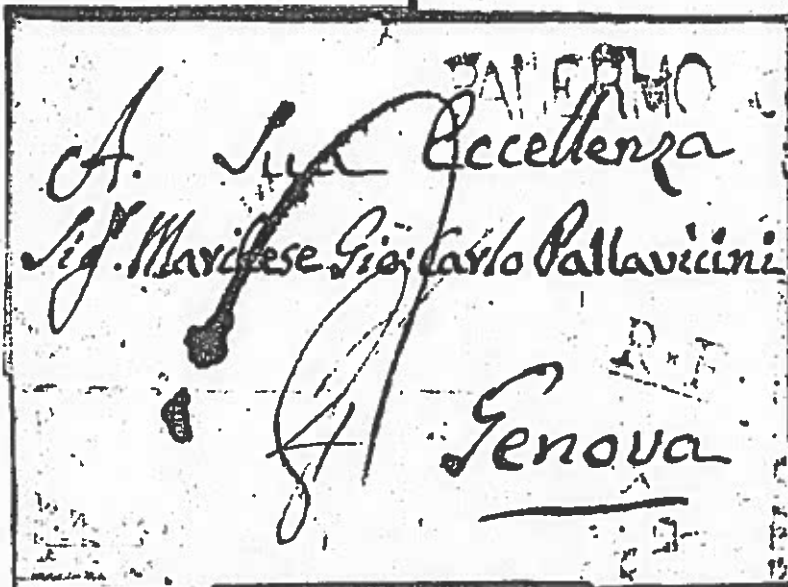 PALERMO
A. Sua Eccellenza
Sig.r Marchese Gio: Carlo Pallavicini
R.F
Genova